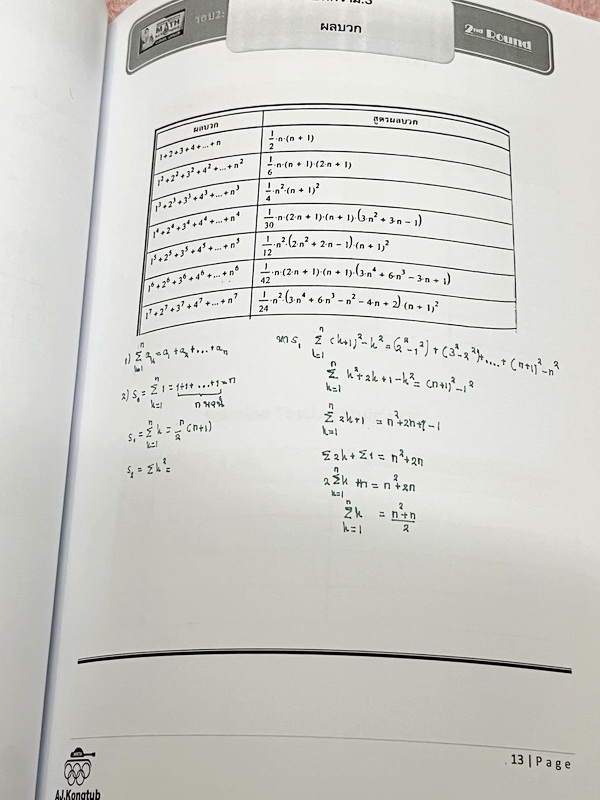 MATH
รอบ2:
ผลบวก
2nd Round
ผลบวก
สูตรผลบวก
1+2+3+4+...+n
1/2·n·(n + 1)
1²+2²+3²+4²+...+n²
1/6·n·(n + 1)·(2·n + 1)
1³+2³+3³+4³+...+n³
1/4·n²·(n + 1)²
1⁴+2⁴+3⁴+4⁴+...+n⁴
1/30·n·(2·n + 1)·(n + 1)·(3·n² + 3·n − 1)
1⁵+2⁵+3⁵+4⁵+...+n⁵
1/12·n²·(2·n² + 2·n − 1)·(n + 1)²
1⁶+2⁶+3⁶+4⁶+...+n⁶
1/42·n·(2·n + 1)·(n + 1)·(3·n⁴ + 6·n³ − 3·n + 1)
1⁷+2⁷+3⁷+4⁷+...+n⁷
1/24·n²·(3·n⁴ + 6·n³ − n² − 4·n + 2)·(n + 1)²
1) n Σ k=1 aₖ = a₁ + a₂ + ... + aₙ
2) S₀ = n Σ k=1 1 = 1+1+...+1 = n
S₁ = n Σ k=1 k = n/2 (n+1)
S₂ = Σk² =
หา S₁ n Σ k=1 (k+1)²−k² = (2²−1²) + (3²−2²)+....+ (n+1)²−n²
n Σ k=1 k²+2k+1−k² = (n+1)²−1²
n Σ k=1 2k+1 = n²+2n+1−1
Σ2k + Σ1 = n²+2n
2 n Σ k=1 k +n = n²+2n
n Σ k=1 k = n²+n/2
13 | Page
AJ.Kongtub